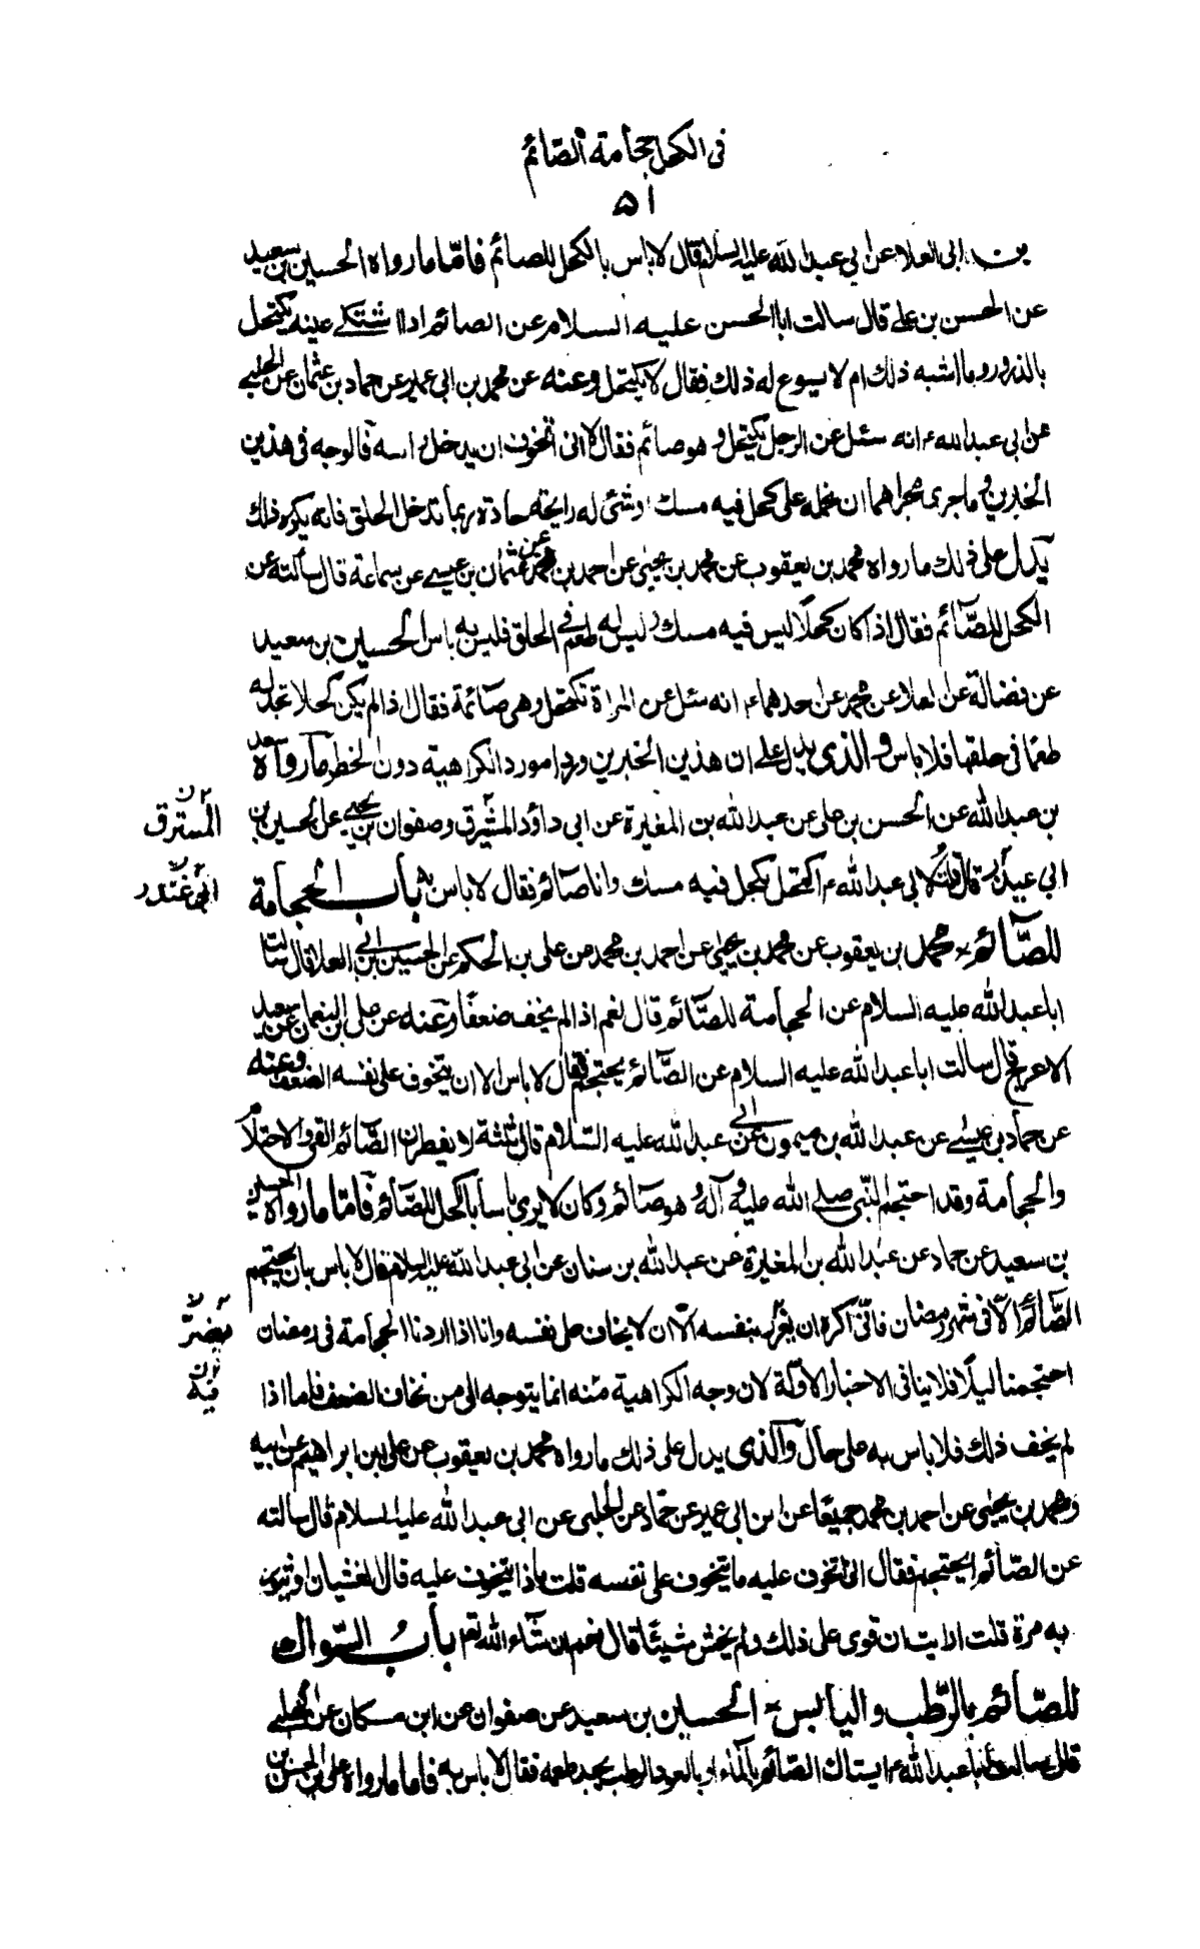 فى الكحل وحجامة الصّائم
۵۱
بن ابى العلا عن ابى عبد الله عليه السلام قال لا باس بالكحل للصائم فامّا ما رواه الحسين بن سعيد
عن الحسن بن على قال سالت ابا الحسن عليه السلام عن الصائم اذا اشتكے عينه يكتحل
بالذرور وما اشبه ذلك ام لا يسوع له ذلك فقال لا يكتحل وعنه عن محمد بن ابى عمير عن حماد بن عثمان عن الحلبے
عن ابى عبد الله ع انه سئل عن الرجل يكتحل وهو صائم فقال لا انى اتخوف ان يدخل راسه فالوجه فى هذين
الخبرين وما جرى مجراهما ان نحمله على كحل فيه مسك او شئ له رايحة حادة ربما تدخل الحلق فانه يكره ذلك
يدل على ذلك ما رواه محمد بن يعقوب عن محمد بن يحيى عن احمد بن محمد عن عثمان بن عيسے عن سماعة قال سألته عن
الكحل للصّائم فقال اذا كان كحلًا ليس فيه مسك وليس له طعم فى الحلق فليس به باس الحسين بن سعيد
عن فضالة عن العلا عن محمد عن احدهما ع انه سئل عن المراة تكتحل وهى صائمة فقال اذا لم يكن كحلا تجد له
طعمًا فى حلقها فلا باس والذى يدل على ان هذين الخبرين وردا مورد الكراهية دون الخطر ما رواه سعد
بن عبد الله عن الحسن بن على عن عبد الله بن المغيرة عن ابى داؤد المشرق وصفوان بن يحيے عن الحسين بن
المسترق ن
ابى غندر قال قلت لابى عبد الله ع اكتحل بكحل فيه مسك وانا صائم فقال لا باس به باب الحجامة
ابى غندر ن
للصّائم محمد بن يعقوب عن محمد بن يحيى عن احمد بن محمد عن على بن الحكم عن الحسين بن ابى العلا قال سالت
ابا عبد الله عليه السلام عن الحجامة للصّائم قال نعم اذا لم يخف ضعفًا وعنه عن على بن النعمان عن سعيد
الاعرج قال سالت ابا عبد الله عليه السلام عن الصّائم يحتجم فقال لا باس الا ان يتخوف على نفسه الضعف وعنه
عن حماد بن عيسے عن عبد الله بن ميمون عن ابى عبد الله عليه السّلام قال ثلثة لا يفطرن الصّائم القى والاحتلام
والحجامة وقد احتجم النّبى صلے الله عليه وآله وهو صائم وكان لا يرى باسا بالكحل للصّائم فامّا ما رواه الحسين
بن سعيد عن حماد عن عبد الله بن المغيرة عن عبد الله بن سنان عن ابى عبد الله عليه السلام قال لا باس بان يحتجم
الصّائم الّا فى شهر رمضان فانّى اكره ان يغرّر بنفسه الّا ان لا يخاف على نفسه وانا اذا اردنا الحجامة فى رمضان
يضرّ ن
احتجمنا ليلًا فلا ينافى الاخبار الاوّلة لان وجه الكراهية منه انما يتوجه الى من نخاف الضعف فاما اذا
فيه ن
لم يخف ذلك فلا باس به على حال والّذى يدل على ذلك ما رواه محمد بن يعقوب عن على بن ابراهيم عن ابيه
ومحمد بن يحيى عن احمد بن محمد جميعًا عن ابن ابى عمير عن حمّاد عن الحلبى عن ابى عبد الله عليه السلام قال سالته
عن الصّائم ايحتجم فقال انى اتخوف عليه ما يتخوف على نفسه قلت ماذا يتخوف عليه قال الغشيان او تثور
به مرة قلت ارايت ان قوى على ذلك ولم يخش شيئًا قال نعم ان شاء الله تعم بابُ السّواك
للصّائم بالرّطب واليابس الحسين بن سعيد عن صفوان عن ابن مسكان عن الحلبے
قال سالت ابا عبد الله ع ايستاك الصّائم بالماء او بالعود الرطب يجد طعمه فقال لا باس به فاما ما رواه على بن الحسن بن